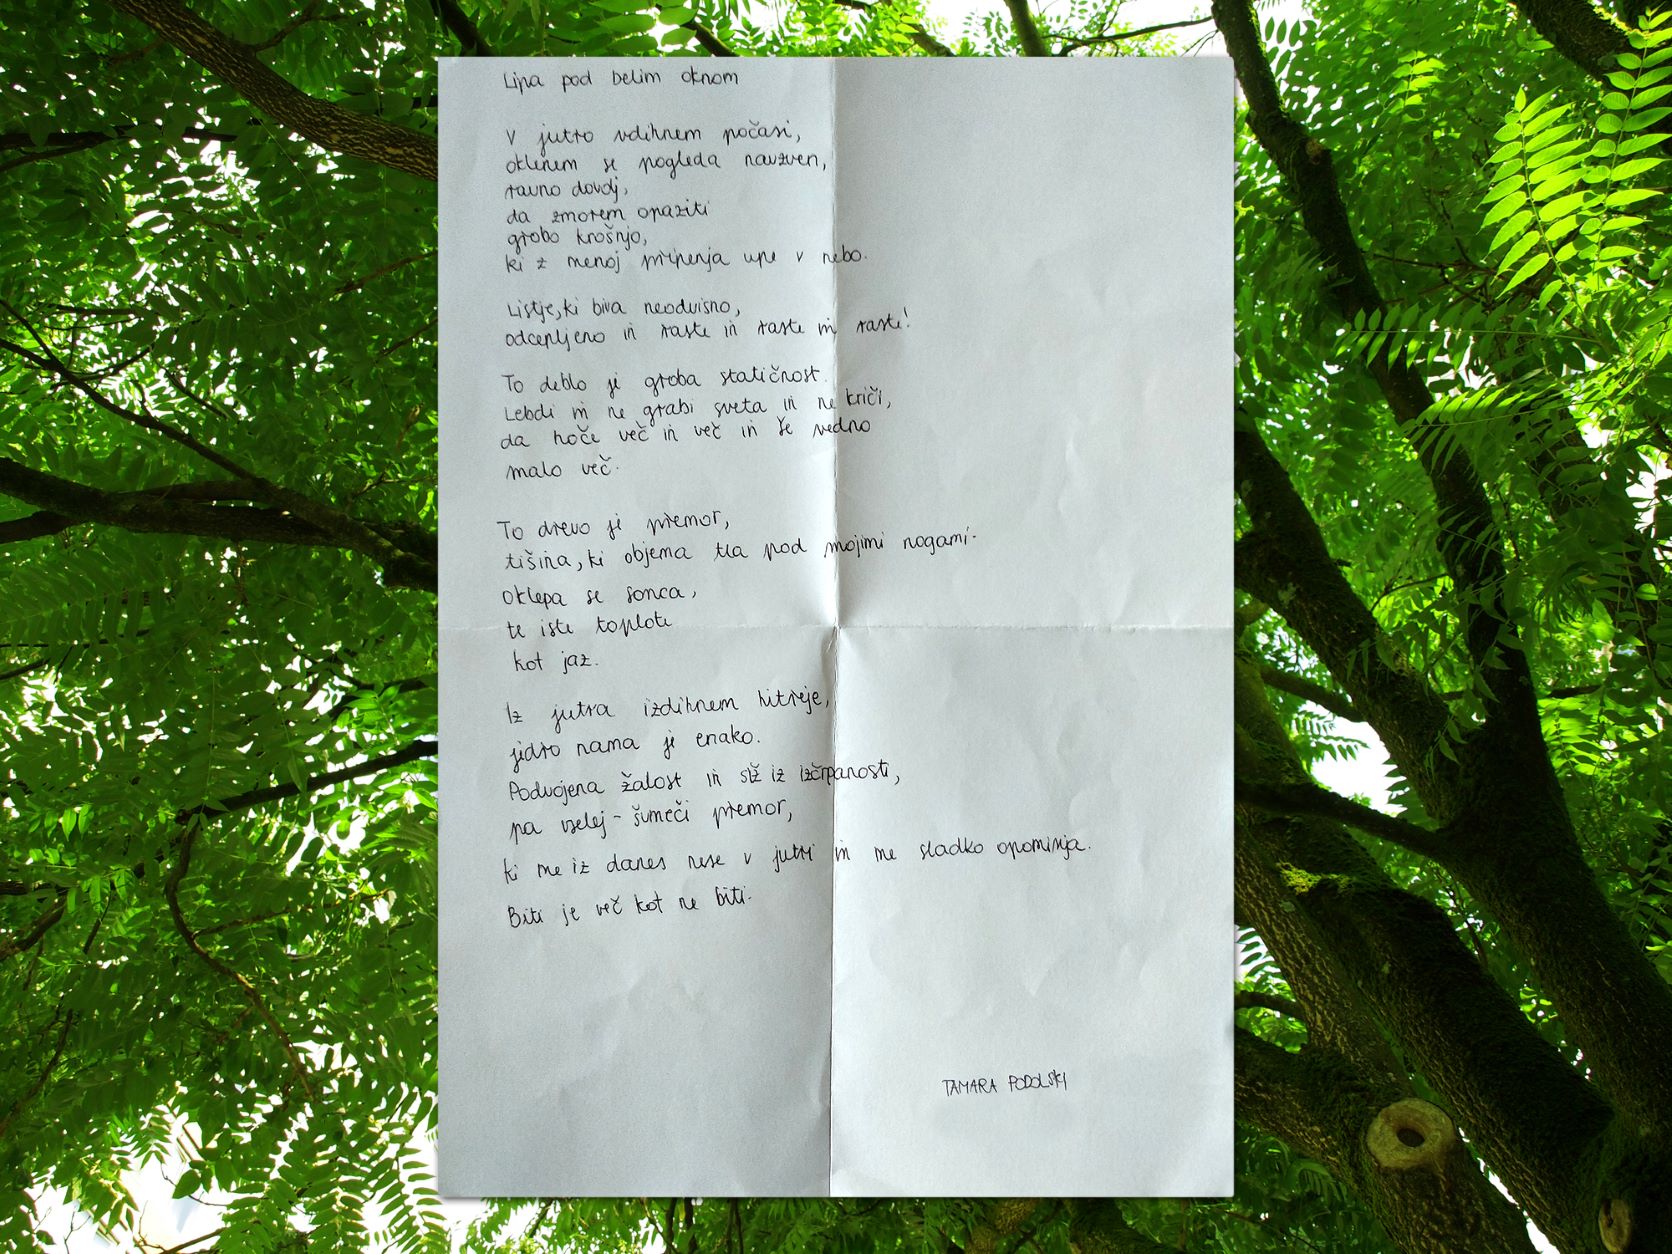 Lipa pod belim oknom
V jutro vdihnem počasi,
oklenem se pogleda navzven,
ravno dovolj,
da zmorem opaziti
grobo krošnjo,
ki z menoj pripenja upe v nebo.
Listje, ki biva neodvisno,
odcepljeno in raste in raste in raste!
To deblo je groba statičnost.
Lebdi in ne grabi sveta in ne kriči,
da hoče več in več in še vedno
malo več.
To drevo je premor,
tišina, ki objema tla pod mojimi nogami.
Oklepa se sonca,
te iste toplote
kot jaz.
Iz jutra izdihnem hitreje,
jedro nama je enako.
Podvojena žalost in slž iz izčrpanosti,
pa vselej - šumeči premor,
ki me iz danes nese v jutri in me sladko opominja.
Biti je več kot ne biti.
TAMARA PODOLSKI